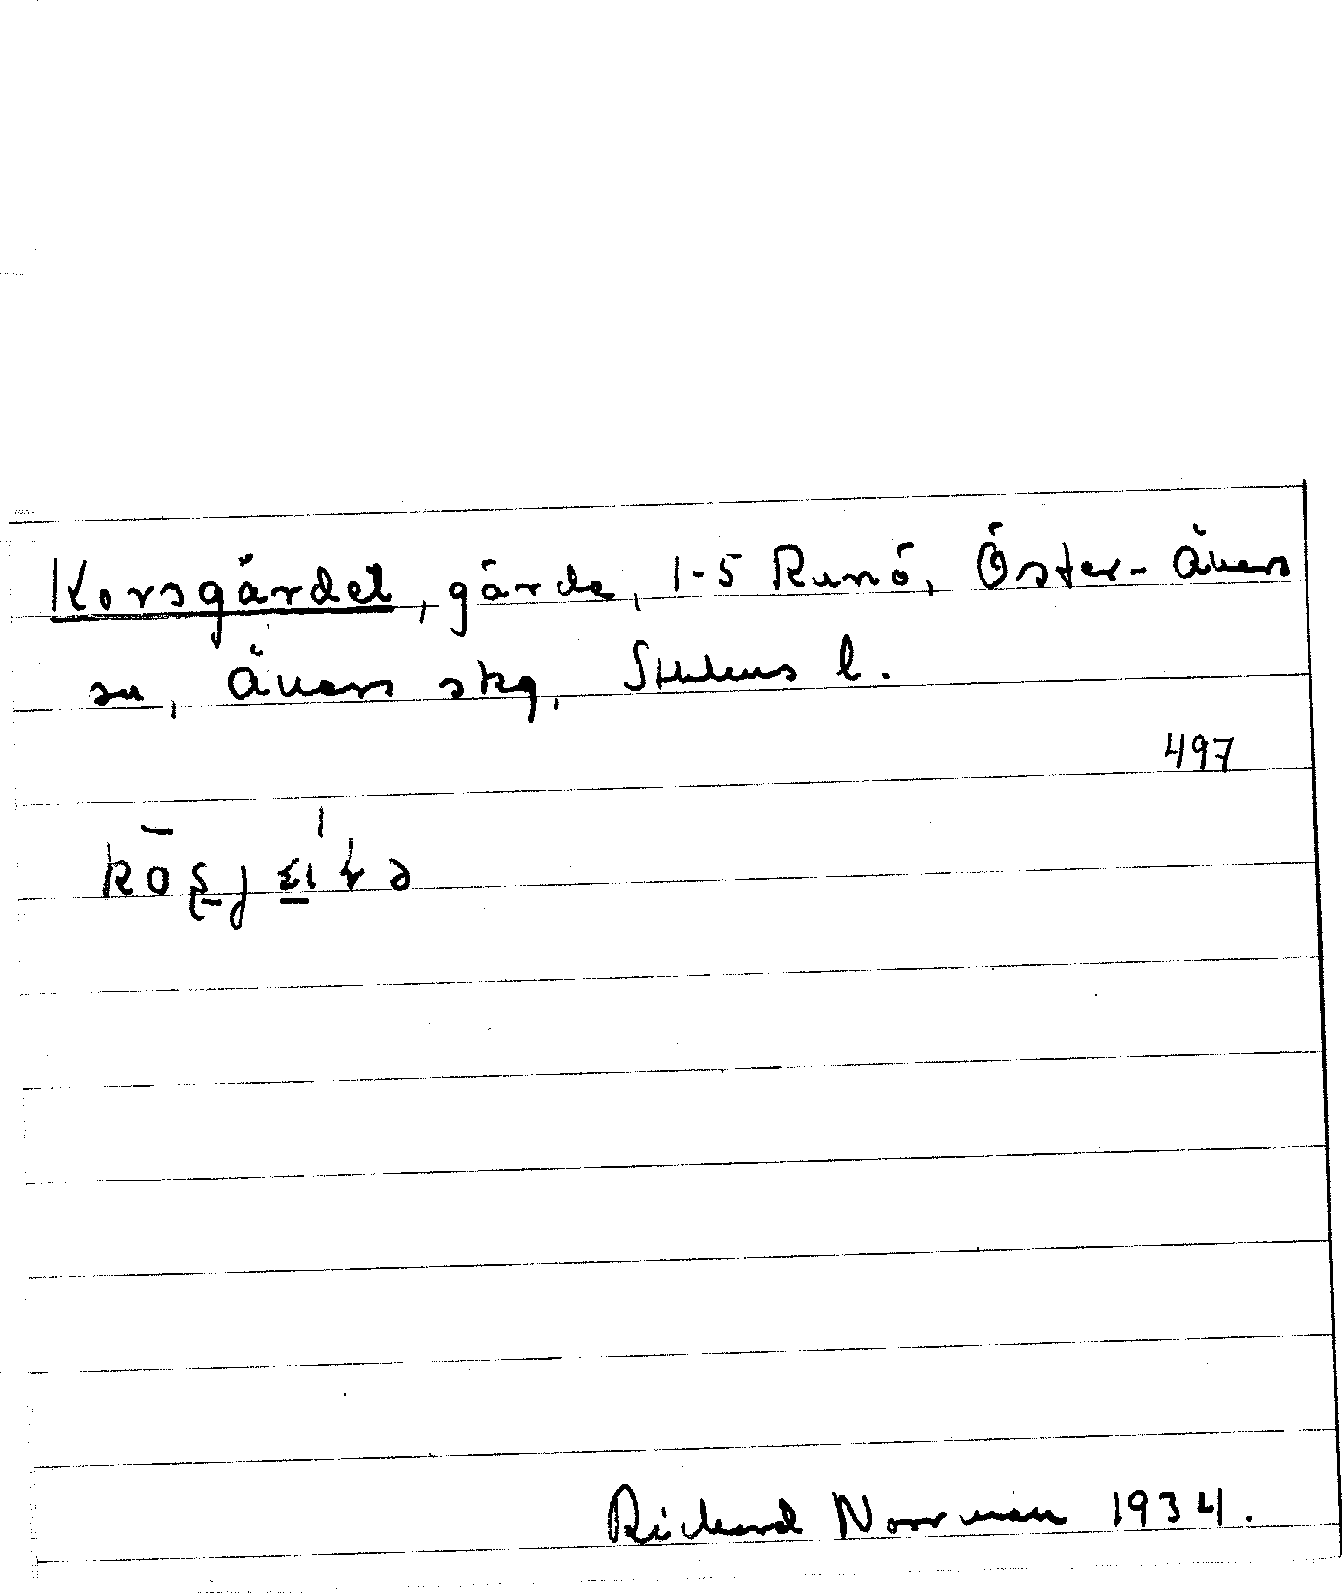 Korsgärdet, gärde, 1-5 Runö, Öster-Åkers
sn, Åkers skg, Sthlms l.
497
Rickard Norrman 1934.